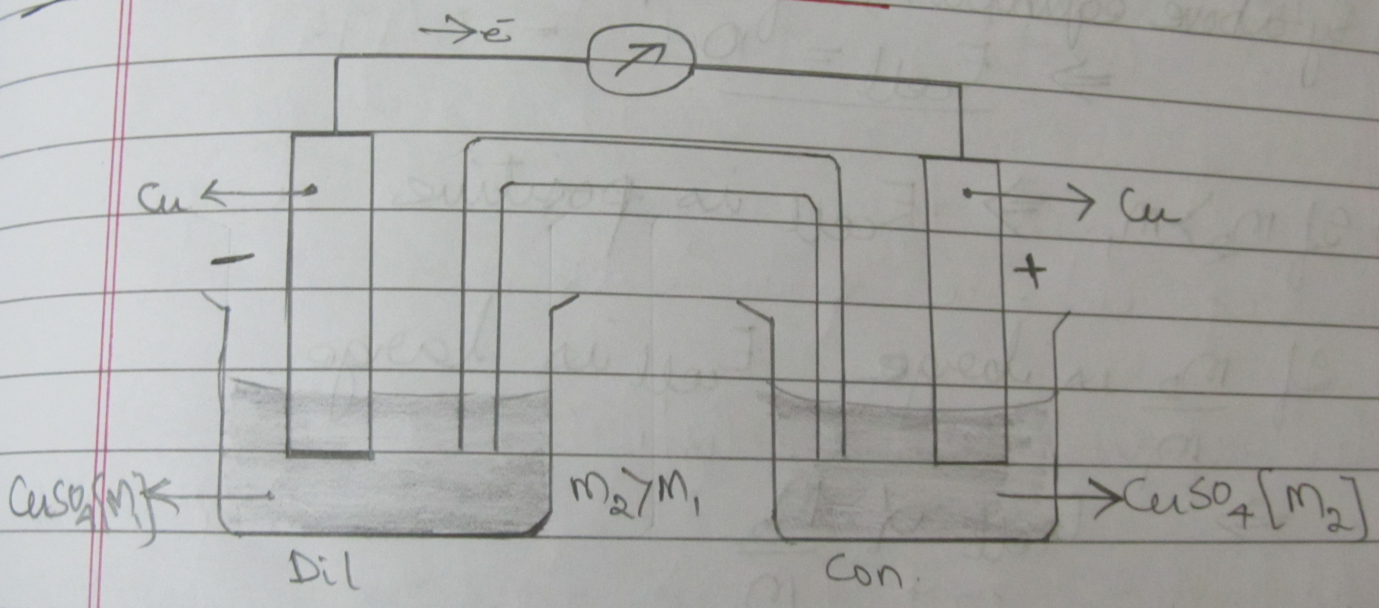 →ē
Cu
Cu
-
+
CuSO4[M1]
M2>M1
CuSO4[M2]
Dil
Con.